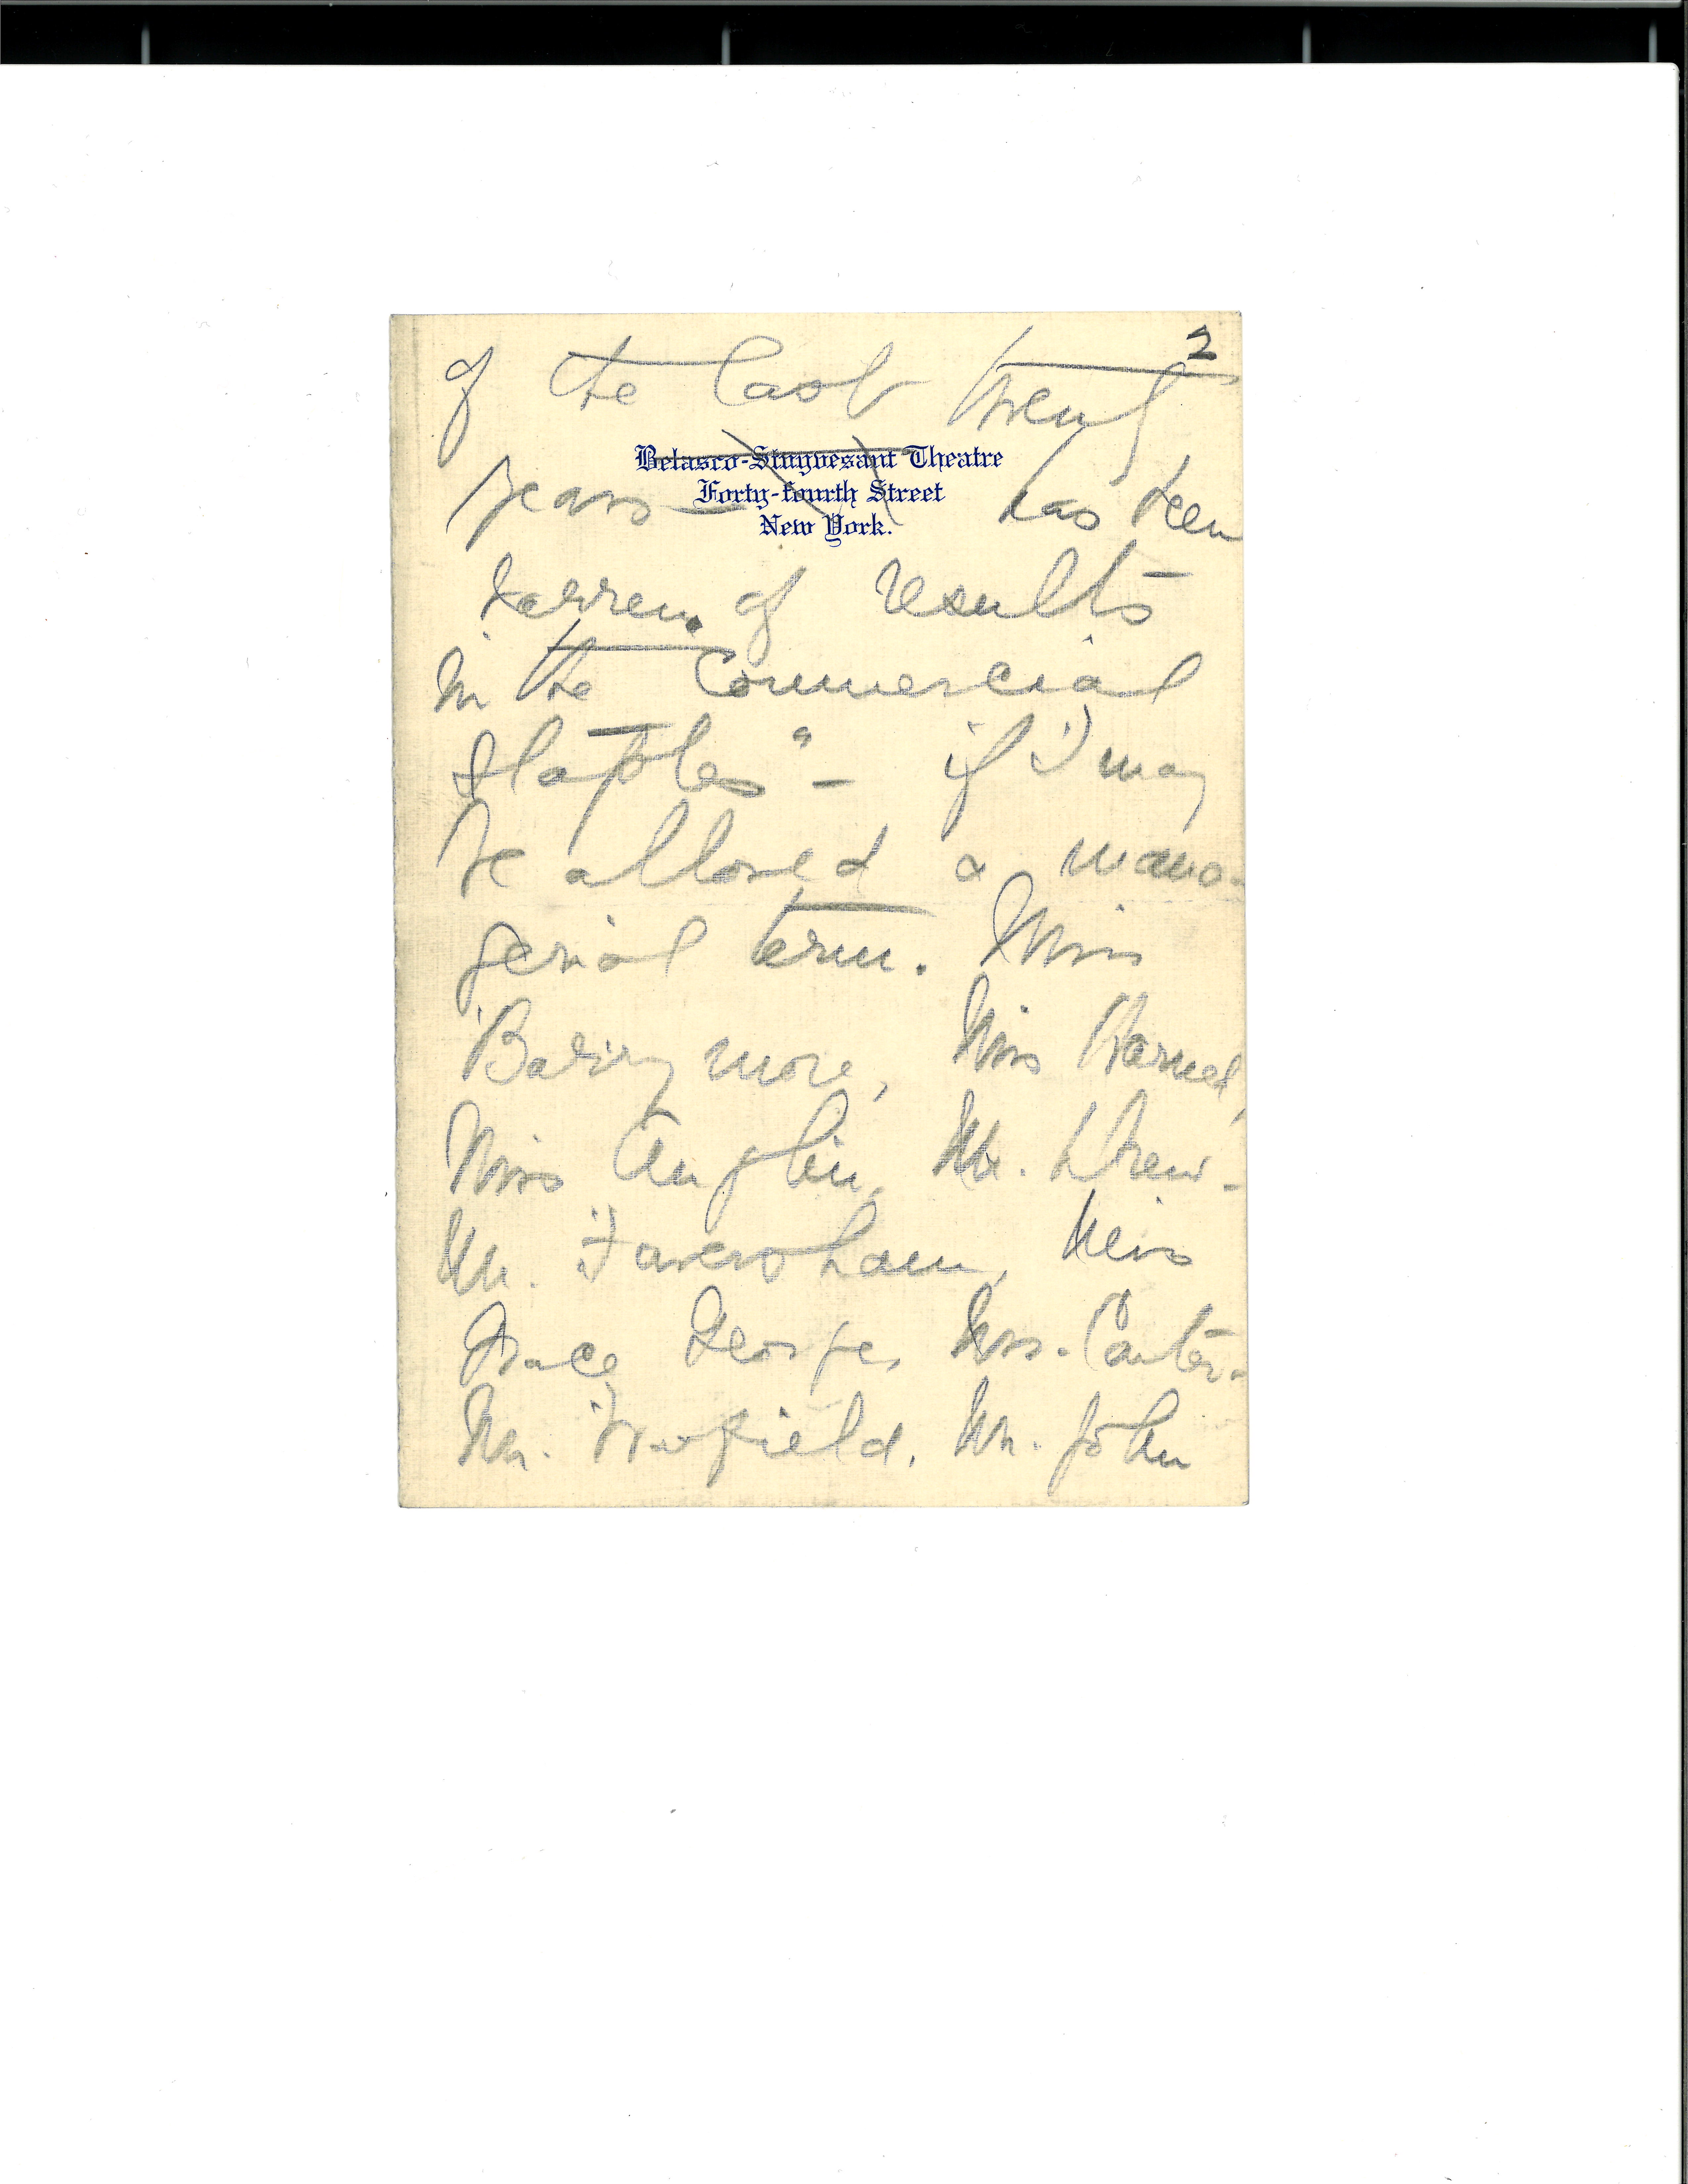 2
of the last twenty
Belasco-Stuyvesant Theatre
Forty-fourth Street
New York.
years — has been
barren of results
in the "Commercial
staples" — if I may
be allowed a mana-
gerial term. Miss
Barrymore, Miss Harned,
Miss Anglin, Mr. Drew -
Mr. Faversham, Miss
Grace George, Mrs. Carter -
Mr. Warfield, Mr. John